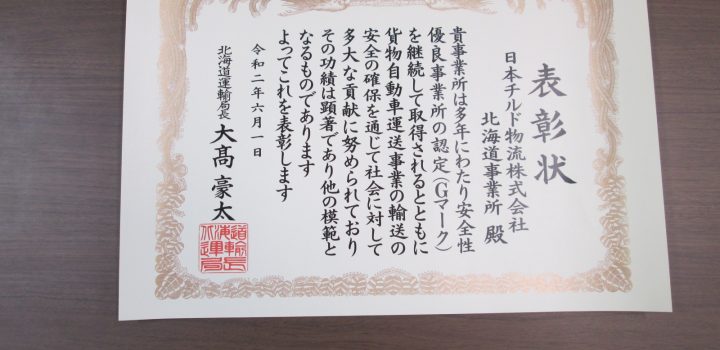 表彰状
日本チルド物流株式会社
北海道事業所 殿
貴事業所は多年にわたり安全性
優良事業所の認定（Gマーク）
を継続して取得されるとともに
貨物自動車運送事業の輸送の
安全の確保を通じて社会に対して
多大な貢献に努められており
その功績は顕著であり他の模範と
なるものであります
よってこれを表彰します
令和二年六月一日
北海道運輸局長 大髙豪太